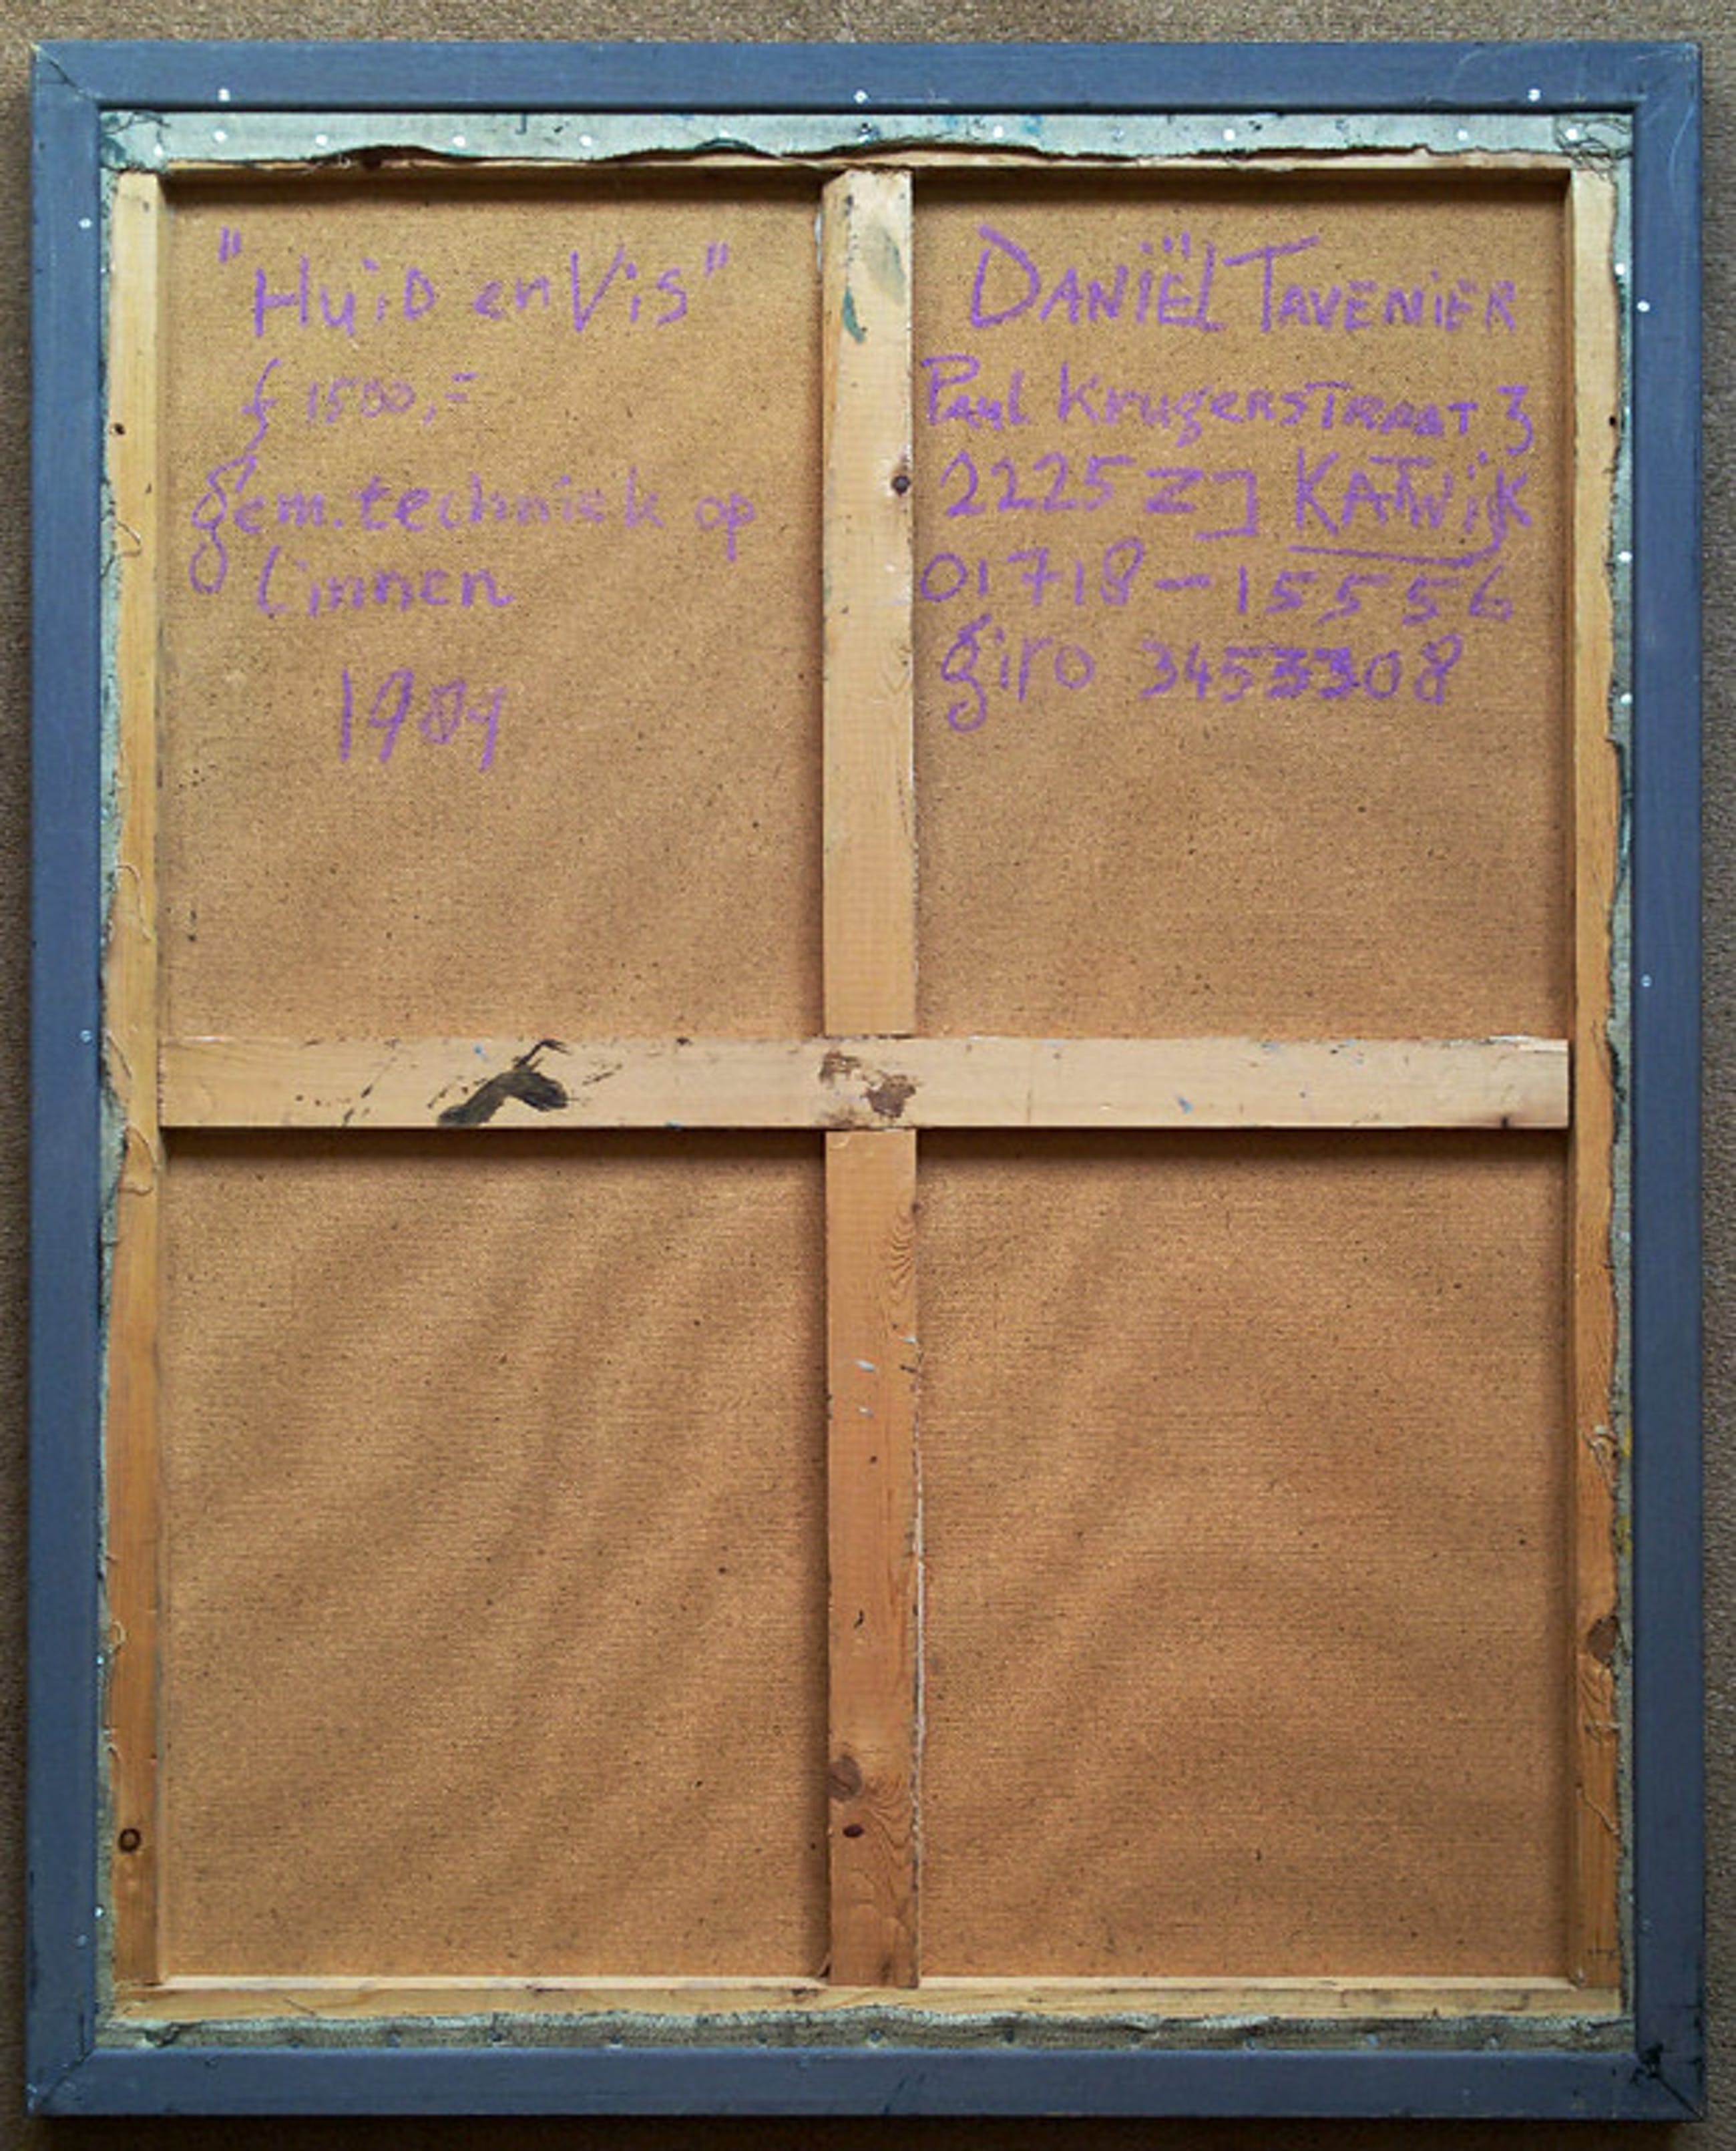 "Huid en Vis"
ƒ 1500,=
gem. techniek op
linnen
1989
DANIËL TAVENIER
Paul Krugerstraat 3
2225 ZJ KATWijK
01718-15556
giro 3453308